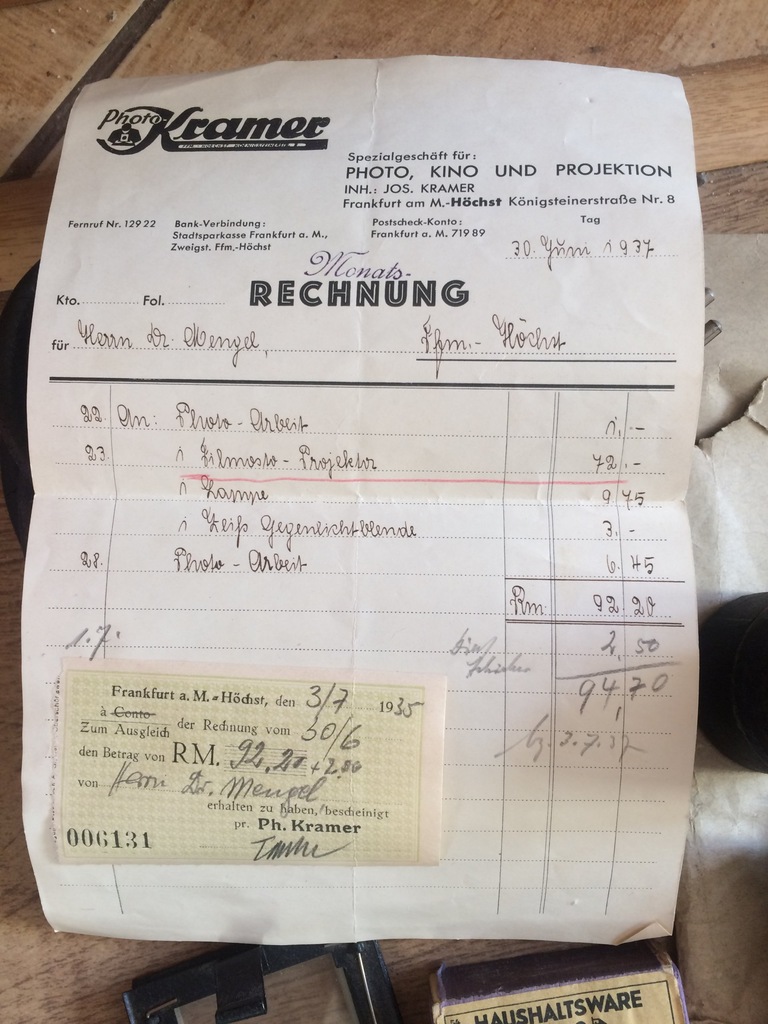 Photo-Kramer
FFM.-HOECHST KOENIGSTEINERSTR. 8
Spezialgeschäft für:
PHOTO, KINO UND PROJEKTION
INH.: JOS. KRAMER
Frankfurt am M.-Höchst Königsteinerstraße Nr. 8
Fernruf Nr. 12922 Bank-Verbindung: Postscheck-Konto: Tag
Stadtsparkasse Frankfurt a. M., Frankfurt a. M. 71989
Zweigst. Ffm.-Höchst
30. Juni 1937
Monats-
Kto. Fol. RECHNUNG
für Herrn Dr. Mengel, Ffm.- Höchst
22. An: Photo-Arbeit 1.-
23. 1 Filmosto-Projektor 72.-
1 Lampe 9 75
1 Zeiß Gegenlichtblende 3.-
28. Photo-Arbeit 6.45
Rm. 92.20
1.7. 2,50
94,70
3.7.37
Frankfurt a. M.-Höchst, den 3/7 1935
à Conto
Zum Ausgleich der Rechnung vom 30/6
den Betrag von RM. 92.20 + 2.50
von Herrn Dr. Mengel
erhalten zu haben, bescheinigt
pr. Ph. Kramer
006131
HAUSHALTSWARE